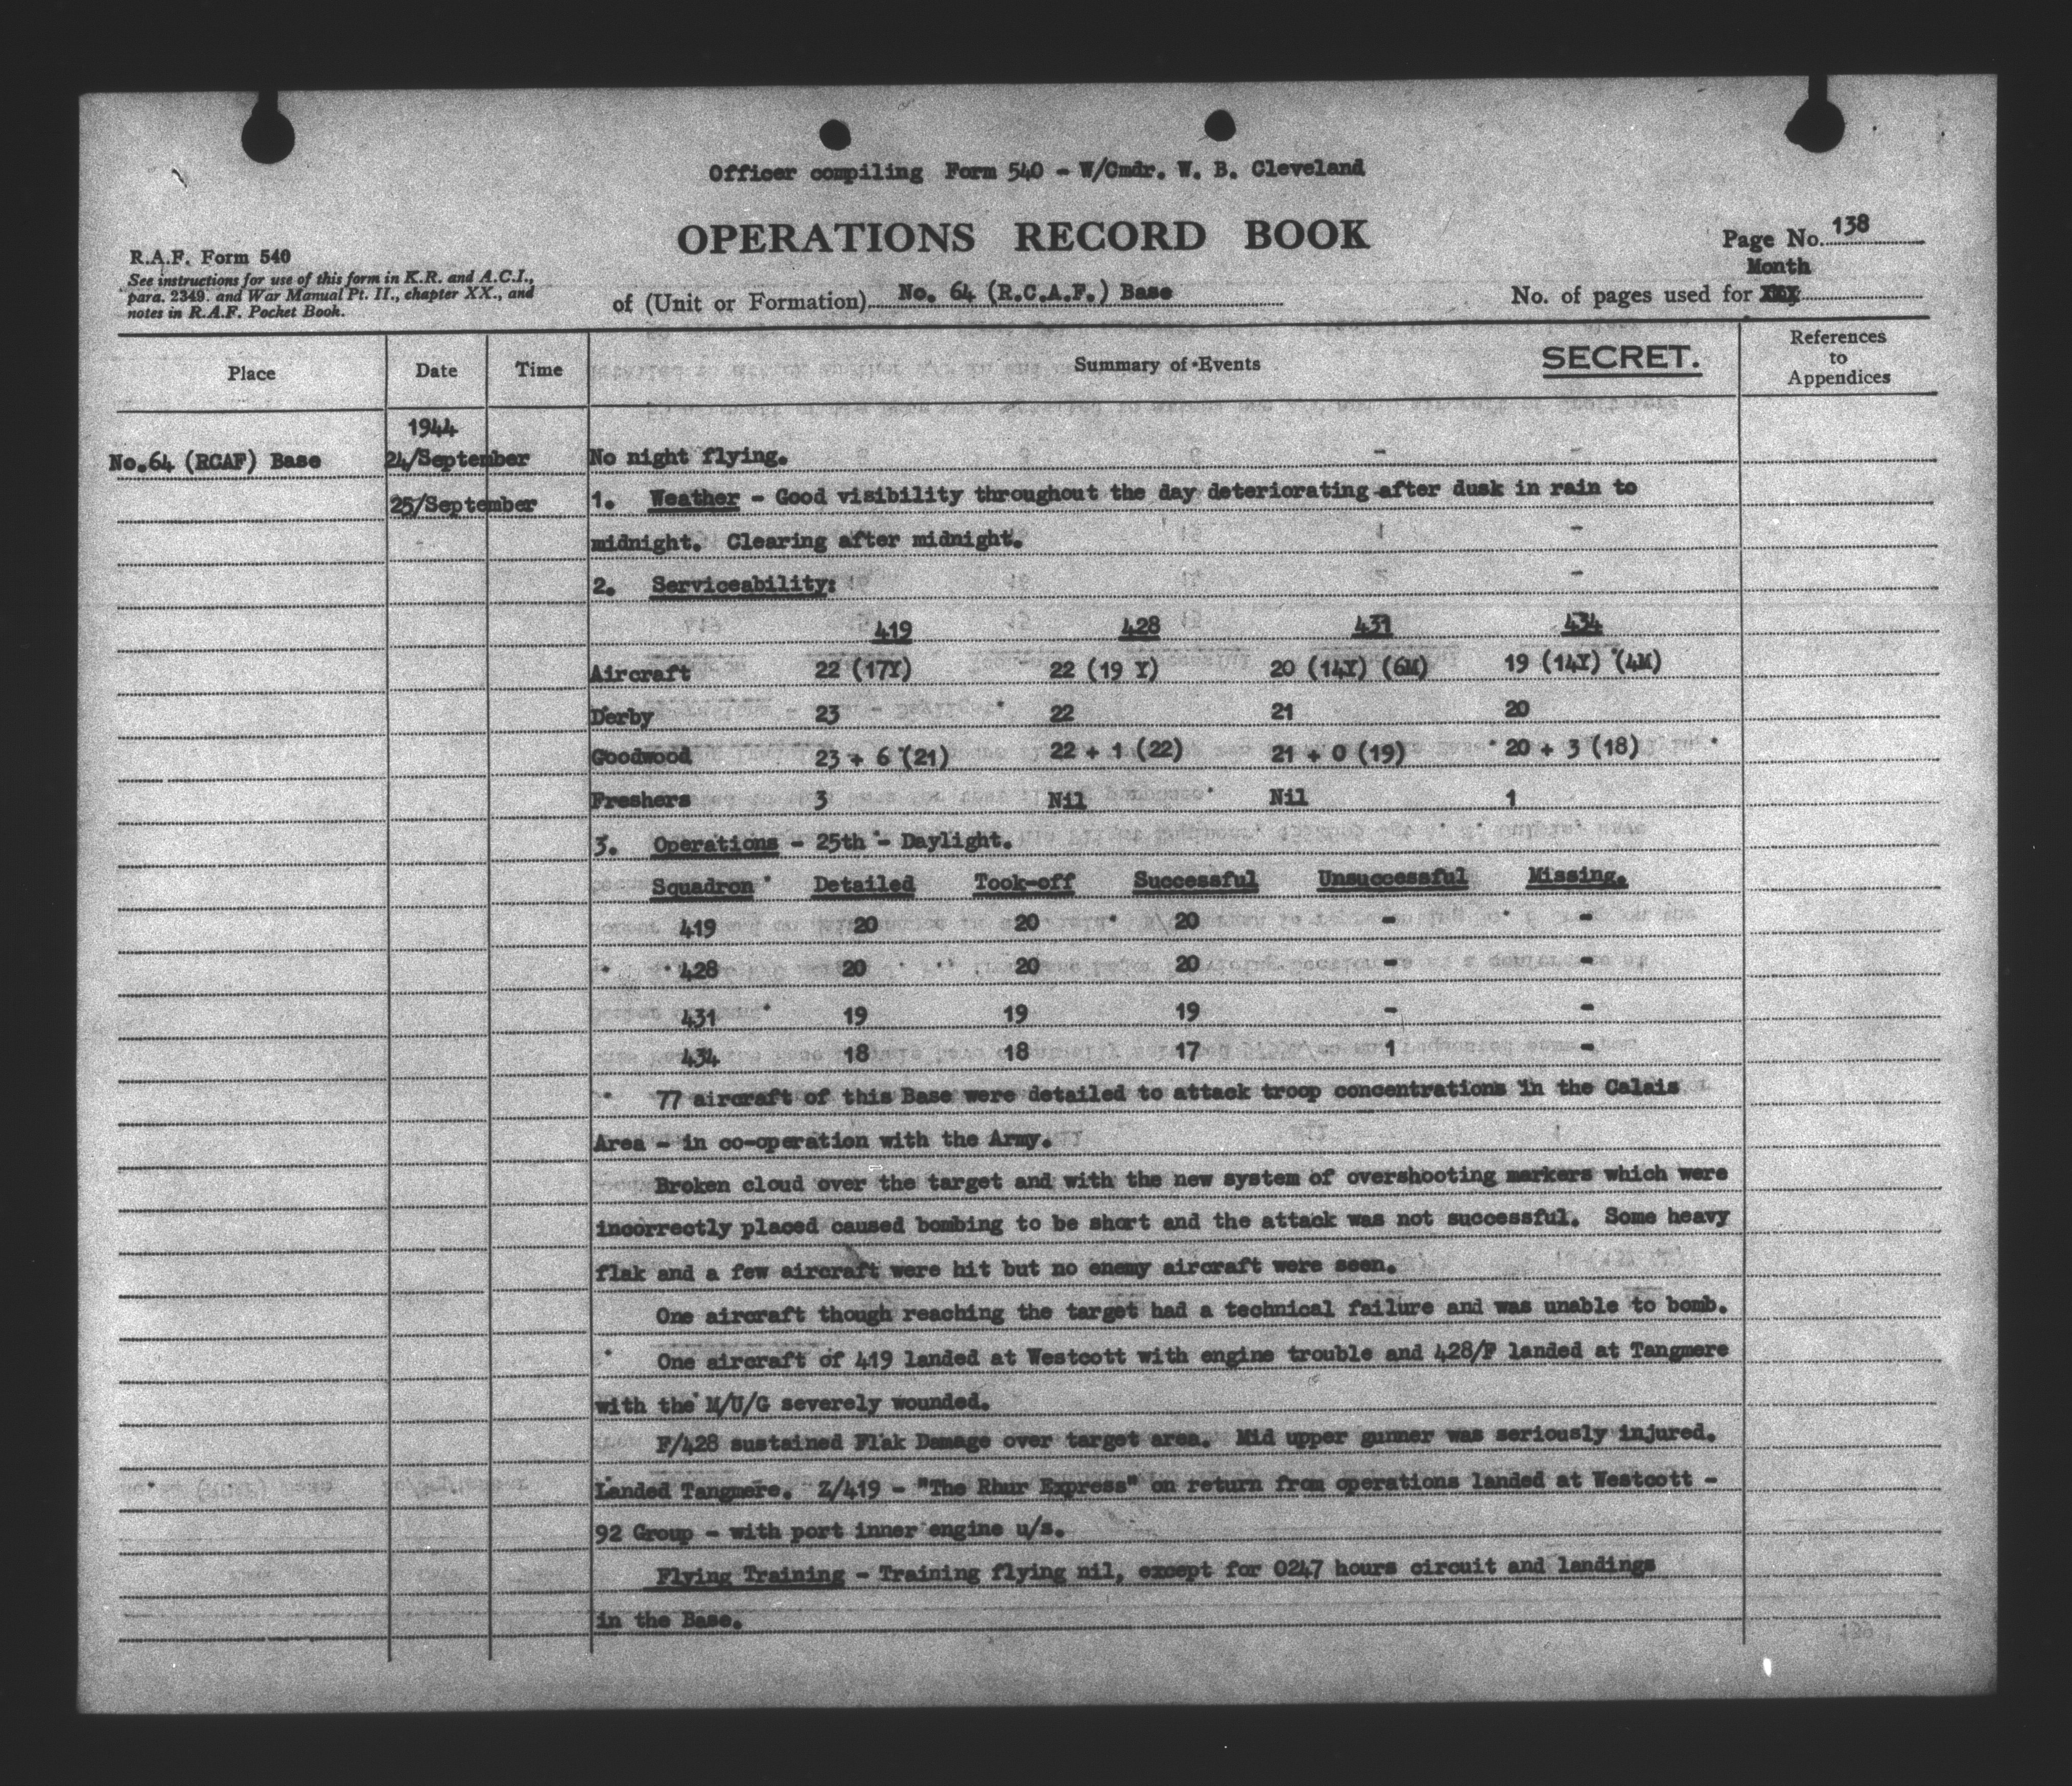 Officer compiling Form 540 - W/Cmdr. W. B. Cleveland
OPERATIONS RECORD BOOK
Page No. 138
R.A.F. Form 540
See instructions for use of this form in K.R. and A.C.I.,
para. 2349. and War Manual Pt. II., chapter XX., and
notes in R.A.F. Pocket Book.
of (Unit or Formation) No. 64 (R.C.A.F.) Base
Month
No. of pages used for
Place Date Time Summary of Events SECRET. References to Appendices
1944
No.64 (RCAF) Base 24/September No night flying.
25/September 1. Weather - Good visibility throughout the day deteriorating after dusk in rain to
midnight. Clearing after midnight.
2. Serviceability:
419 428 431 434
Aircraft 22 (17Y) 22 (19 Y) 20 (14Y) (6M) 19 (14Y) (4M)
Derby 23 22 21 20
Goodwood 23 + 6 (21) 22 + 1 (22) 21 + 0 (19) 20 + 3 (18)
Freshers 3 Nil Nil 1
3. Operations - 25th - Daylight.
Squadron Detailed Took-off Successful Unsuccessful Missing.
419 20 20 20 - -
428 20 20 20 - -
431 19 19 19 - -
434 18 18 17 1 -
77 aircraft of this Base were detailed to attack troop concentrations in the Calais
Area - in co-operation with the Army.
Broken cloud over the target and with the new system of overshooting markers which were
incorrectly placed caused bombing to be short and the attack was not successful. Some heavy
flak and a few aircraft were hit but no enemy aircraft were seen.
One aircraft though reaching the target had a technical failure and was unable to bomb.
One aircraft of 419 landed at Westcott with engine trouble and 428/F landed at Tangmere
with the M/U/G severely wounded.
F/428 sustained Flak Damage over target area. Mid upper gunner was seriously injured.
Landed Tangmere. Z/419 - "The Rhur Express" on return from operations landed at Westcott -
92 Group - with port inner engine u/s.
Flying Training - Training flying nil, except for 0247 hours circuit and landings
in the Base.